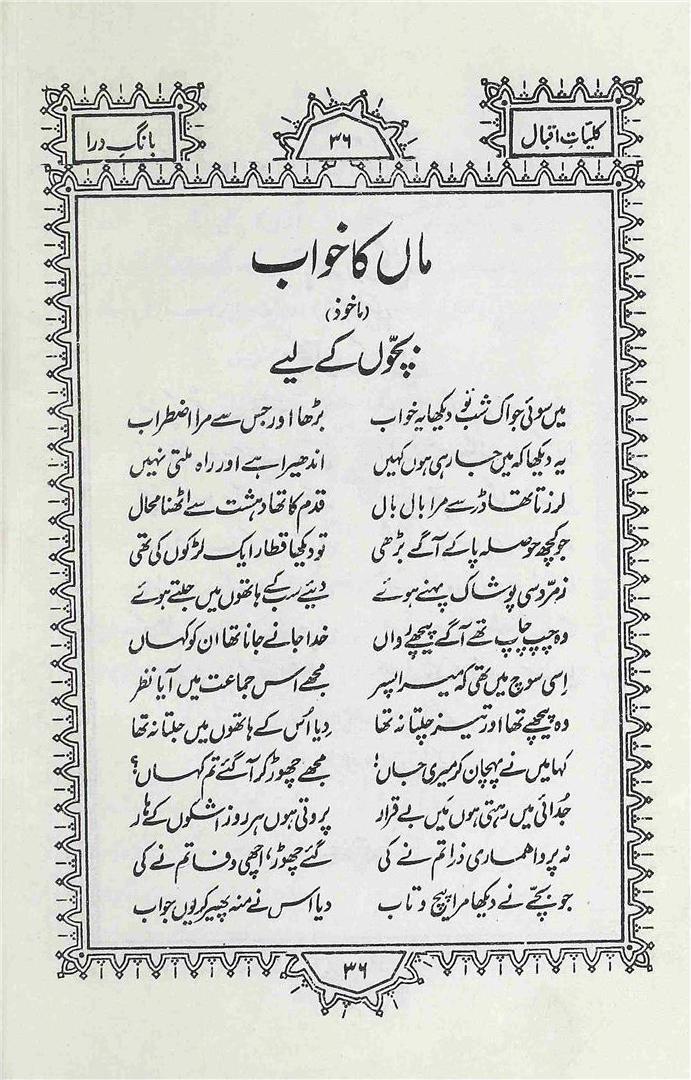 کلیاتِ اقبال
۳۶
بانگِ درا
ماں کا خواب
(ماخوذ)
بچّوں کے لیے
میں سوئی جو اک شب تو دیکھا یہ خواب بڑھا اور جس سے مرا اضطراب
یہ دیکھا کہ میں جا رہی ہوں کہیں اندھیرا ہے اور راہ ملتی نہیں
لرزتا تھا ڈر سے مرا بال بال قدم کا تھا دہشت سے اٹھنا محال
جو کچھ حوصلہ پا کے آگے بڑھی تو دیکھا قطار ایک لڑکوں کی تھی
زمرّد سی پوشاک پہنے ہوئے دیے سب کے ہاتھوں میں جلتے ہوئے
وہ چپ چاپ تھے آگے پیچھے رواں خدا جانے جانا تھا ان کو کہاں
اِسی سوچ میں تھی کہ میرا پسر مجھے اس جماعت میں آیا نظر
وہ پیچھے تھا اور تیز چلتا نہ تھا دِیا اُس کے ہاتھوں میں جلتا نہ تھا
کہا میں نے پہچان کر میری جاں! مجھے چھوڑ کر آ گئے تم کہاں؟
جُدائی میں رہتی ہوں مَیں بے قرار پروتی ہوں ہر روز اشکوں کے ہار
نہ پروا ہماری ذرا تم نے کی گئے چھوڑ، اچھی وفا تم نے کی
جو بچّے نے دیکھا مرا پیچ و تاب دیا اس نے منہ پھیر کر یوں جواب
۳۶